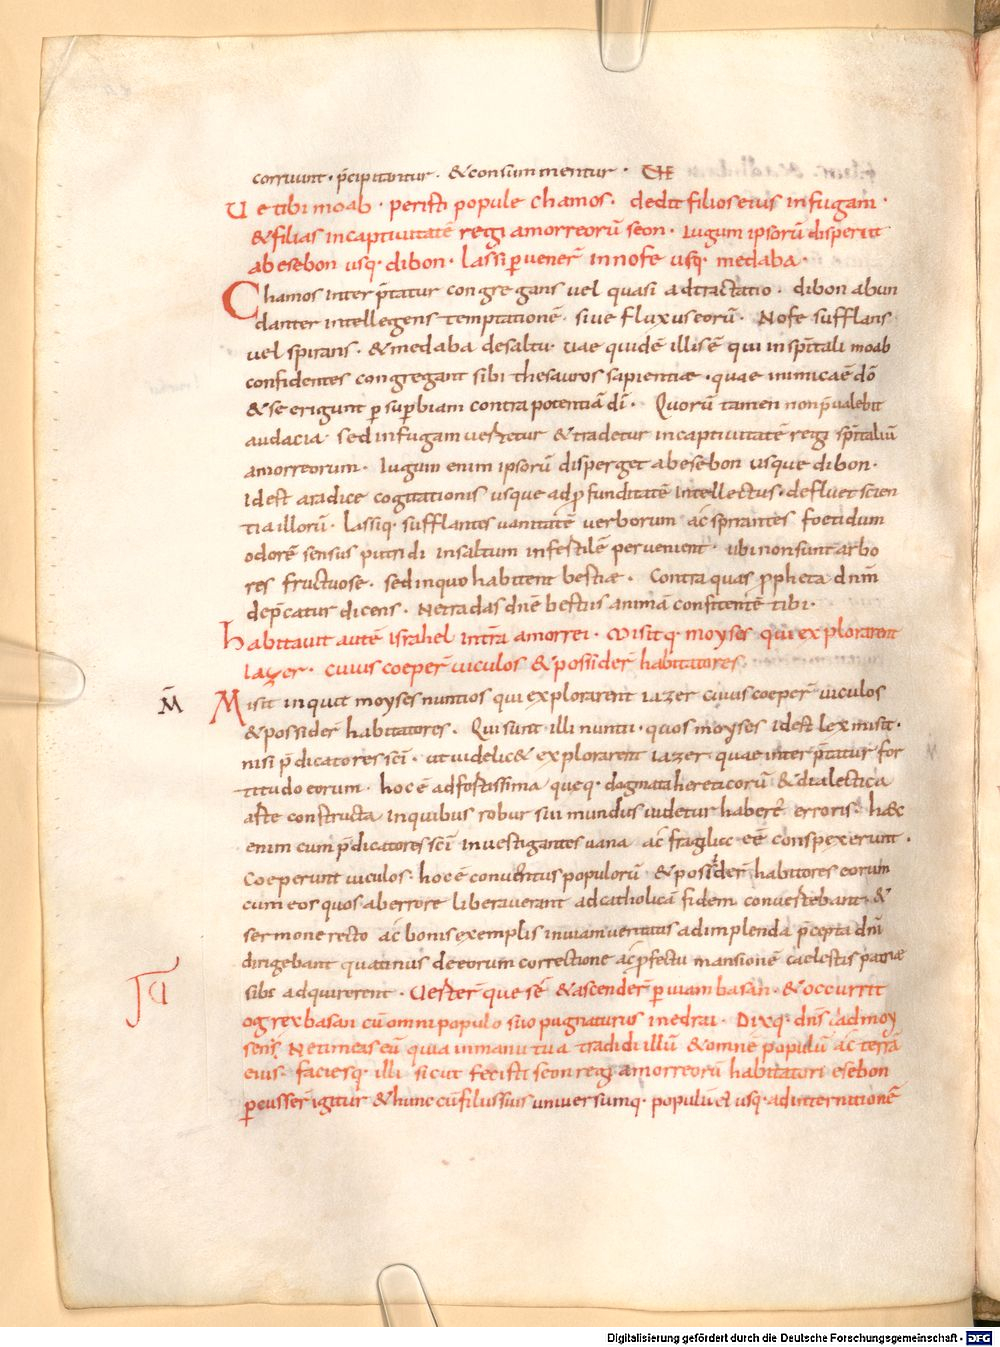 corruunt · p̄cipitantur · & consummentur ·
Ue tibi moab · peristi popule chamos · dedit filios eius in fugam ·
& filias in captiuitatē regi amorreorū seon · Iugum ipsorū disperiit
ab esebon usq· dibon · lassi ꝑuenēr in nofe usq· medaba ·
Chamos interp̄tatur congregans uel quasi adtractatio · dibon abun
danter intellegens temptationē · siue fluxus eorū · Nofe sufflans
uel spirans · & medaba de saltu · uae quidē illis ē qui in sp̄itali moab
confidentes congregant sibi thesauros sapientiæ · quae inimica ē dō
& se erigunt ꝑ suꝑbiam contra potentiā dī · Quorū tamen non p̄ualebit
audacia sed in fugam uertetur & tradetur in captiuitatē regi sp̄italiū
amorreorum · Iugum enim ipsorū disperget ab esebon usque dibon ·
Id est a radice cogitationis usque ad ꝓfunditatē intellectus · defluet scien
tia illorū · lassiq· sufflantis uanitatē uerborum ac spirantes foetidum
odorē sensus putridi in saltum infestilē peruenient · ubi non sunt arbo
res fructuose · sed in quo habitent bestiæ · Contra quas ꝓpheta dn̄m
dep̄catur dicens · Ne tradas dn̄e bestiis animā confitentē tibi ·
habitauit autē israhel in trā amorrei · Misitq· moyses qui explorarent
Iazer · cuius coepēr uiculos & possidēr habitatores
M̄
Misit inquit moyses nuntios qui explorarent iazer cuius coepēr uiculos
& possidēr habitatores · Qui sunt illi nuntii · quos moyses id est lex misit ·
nisi p̄dicatores sc̄i · ut uidelic& explorarent iazer quae interp̄tatur for
titudo eorum · hoc ē ad fortissima queq· dogmata hereticorū & dialectica
arte constructa in quibus robur sui mundus uidetur haberē erroris · hæc
enim cum p̄dicatores sc̄i inuestigantes uana ac fragilia eē conspexerunt ·
Coeperunt uiculos · hoc ē conuentus populorū & possidēr habitores eorum
cum eos quos ab errore liberauerant ad catholicā fidem conuertebant · &
sermone recto ac bonis exemplis in uiam ueritatis ad implenda p̄cepta dn̄i
dirigebant quatinus de eorum correctione ac ꝓfectu mansionē caelestis patriæ
sibi adquirerent · Uerterēr que sē & ascendēr ꝑ uiam basan · & occurrit
og rex basan cū omni populo suo pugnaturus in edrai · Dixq· dn̄s ad moy
sen · Ne timeas eū quia in manu tua tradidi illū & omnē populū ac terrā
eius · faciesq· illi sicut fecisti seon regi amorreorū habitatori esebon
ꝑcusser̄ igitur & hunc cū filiis suis uniuersumq· populū ei usq· ad internitionē